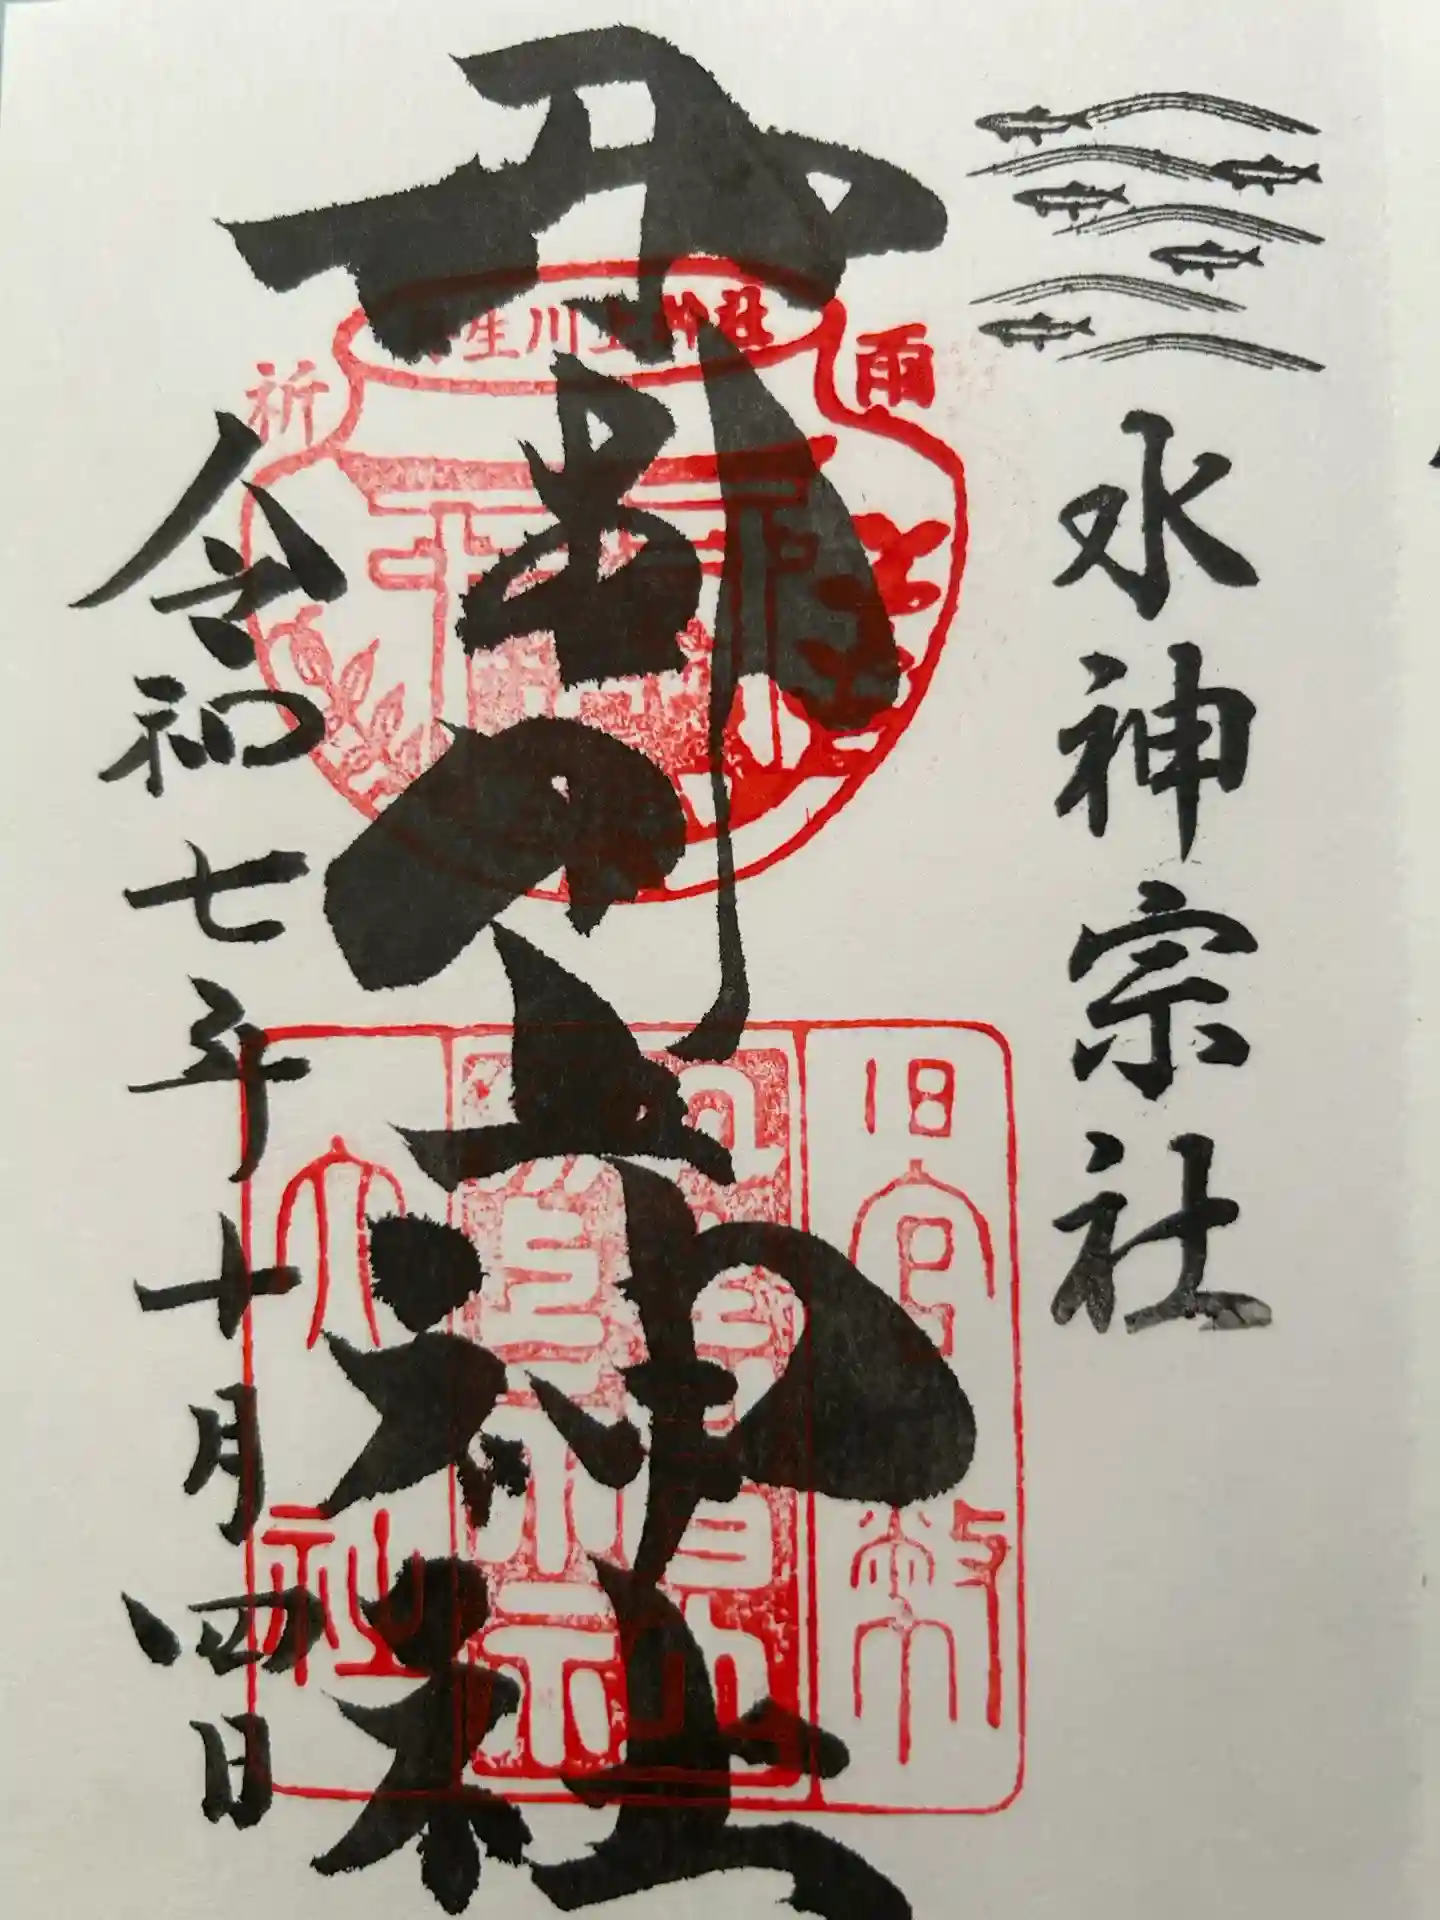 水神宗社
丹生川上神社
令和七年十月四日
祈雨
丹生川上神社
旧官幣
大社